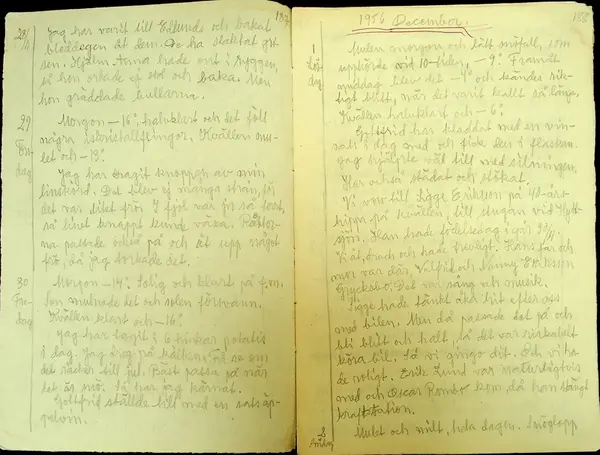 187
28/11
Jag har varit till Edlunds och bakat
bloddegen åt dem. De ha slaktat gri
sen. Hjälm Anna hade ont i ryggen,
så hon orkade ej stå och baka. Men
hon gräddade bullarna.
29
Tors
dag
Morgon -16°, halvklart och det föll
några iskristallflingor. Kvällen mu-
let och -13°.
Jag har dragit knoppen av min
linskörd. Det blev ej många strån, så
det var litet frö. I fjol var frö så torrt,
så linet knappt kunde växa. Råttor-
na passade också på och åt upp något
frö, då jag torkade det.
30
Fre-
dag
Morgon -14°. Solig och klart på f.m.
Sen mulnade det och solen försvann.
Kvällen klart och -16°.
Jag har tagit in 6 hinkar potatis
i dag. Jag drog på kälken. Få se om
det räcker till jul. Bäst passa på när
det är snö. Så har jag kärnat.
Gottfrid ställde till med en sats äp-
pelvin.
1956 December.
188
1
Lör
dag
Mulen morgon och lätt snöfall, som
upphörde vid 10-tiden, -9°. Framåt
middag blev det -4° och kändes rik-
tigt blitt, när det varit kallt så länge.
Kvällen halvklart och -6°.
Gottfrid har kladdat med en vin-
sats i dag och fick den i flaskan.
Jag hjälpte väl till med silningen.
Har också städat och stökat.
Vi voro till Sigge Erikson på 40-års-
kippa på kvällen, till stugan vid Hytt-
sjön. Han hade födelsedag i går 30/11.
Vi åt, drack och hade trevligt. Hans far och
mor var där, Vilfrid och Nanny Erikson
Gryckesbo. Det var sång och musik.
Sigge hade tänkt åka hit efter oss
med bilen. Men då passade det på och
bli blött och halt, så det var riskabelt
köra bil. Så vi gingo dit. Och vi ha-
de roligt. Erik Lund var naturligtvis
med och Oscar Rombo kom, då han stängt
kraftstation.
2
Söndag
Mulet och milt, hela dagen. Snöglopp